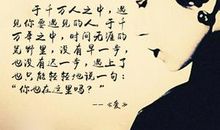 于千万人之中,遇
见你要遇见的人。于千
万年之中,时间无涯的
荒野里,没有早一步,
也没有迟一步,遇上了
也只能轻轻地说一句:
“你也在这里吗?”
--《爱》